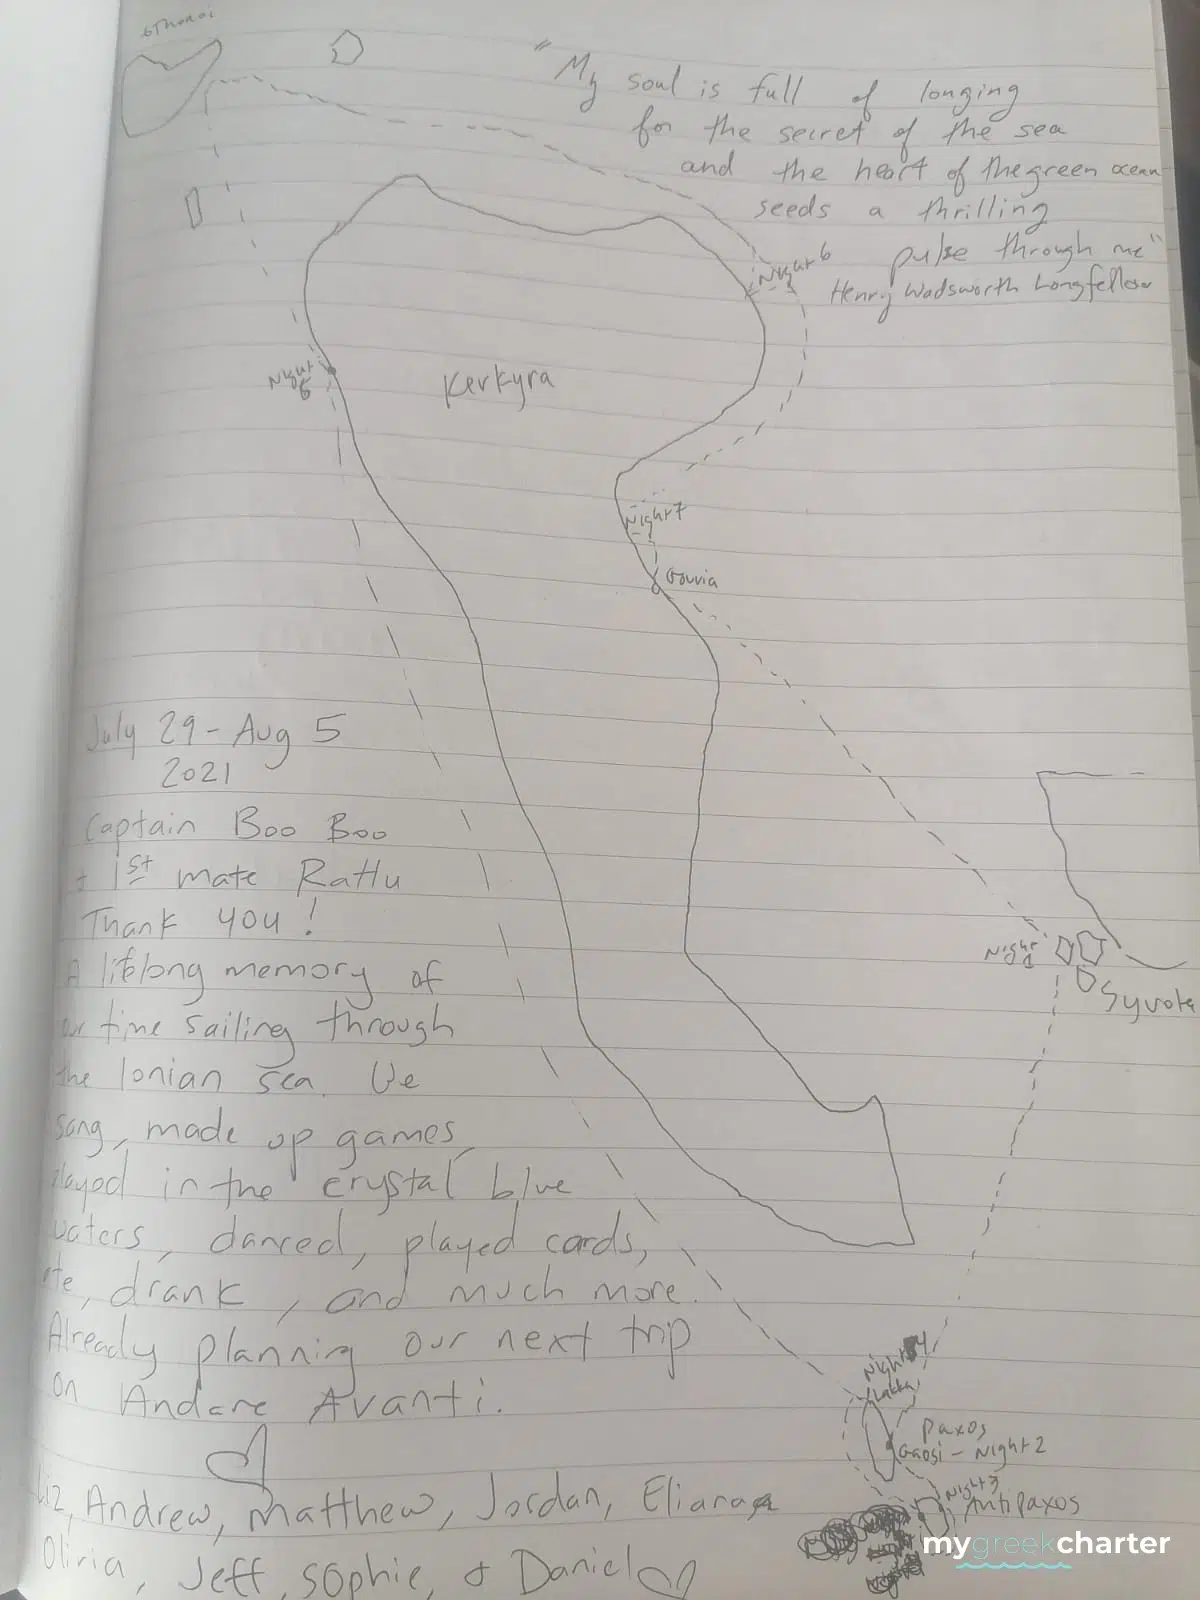 othonoi
"My soul is full of longing
for the secret of the sea
and the heart of the green ocean
seeds a thrilling
pulse through me"
Henry Wadsworth Longfellow
Night 6
Night
5
Kerkyra
Night 7
Gouvia
July 29 - Aug 5
2021
Captain Boo Boo
+ 1st mate Rattu
Thank you!
A lifelong memory of
our time sailing through
the Ionian sea. We
sang, made up games,
played in the crystal blue
waters, danced, played cards,
ate, drank, and much more.
Already planning our next trip
on Andare Avanti.
Liz, Andrew, Matthew, Jordan, Eliana
Olivia, Jeff, Sophie, & Daniel
Night
1
Syvota
Night 4
Lakka
Paxos
Gaosi - Night 2
Night 3
Antipaxos
mygreekcharter